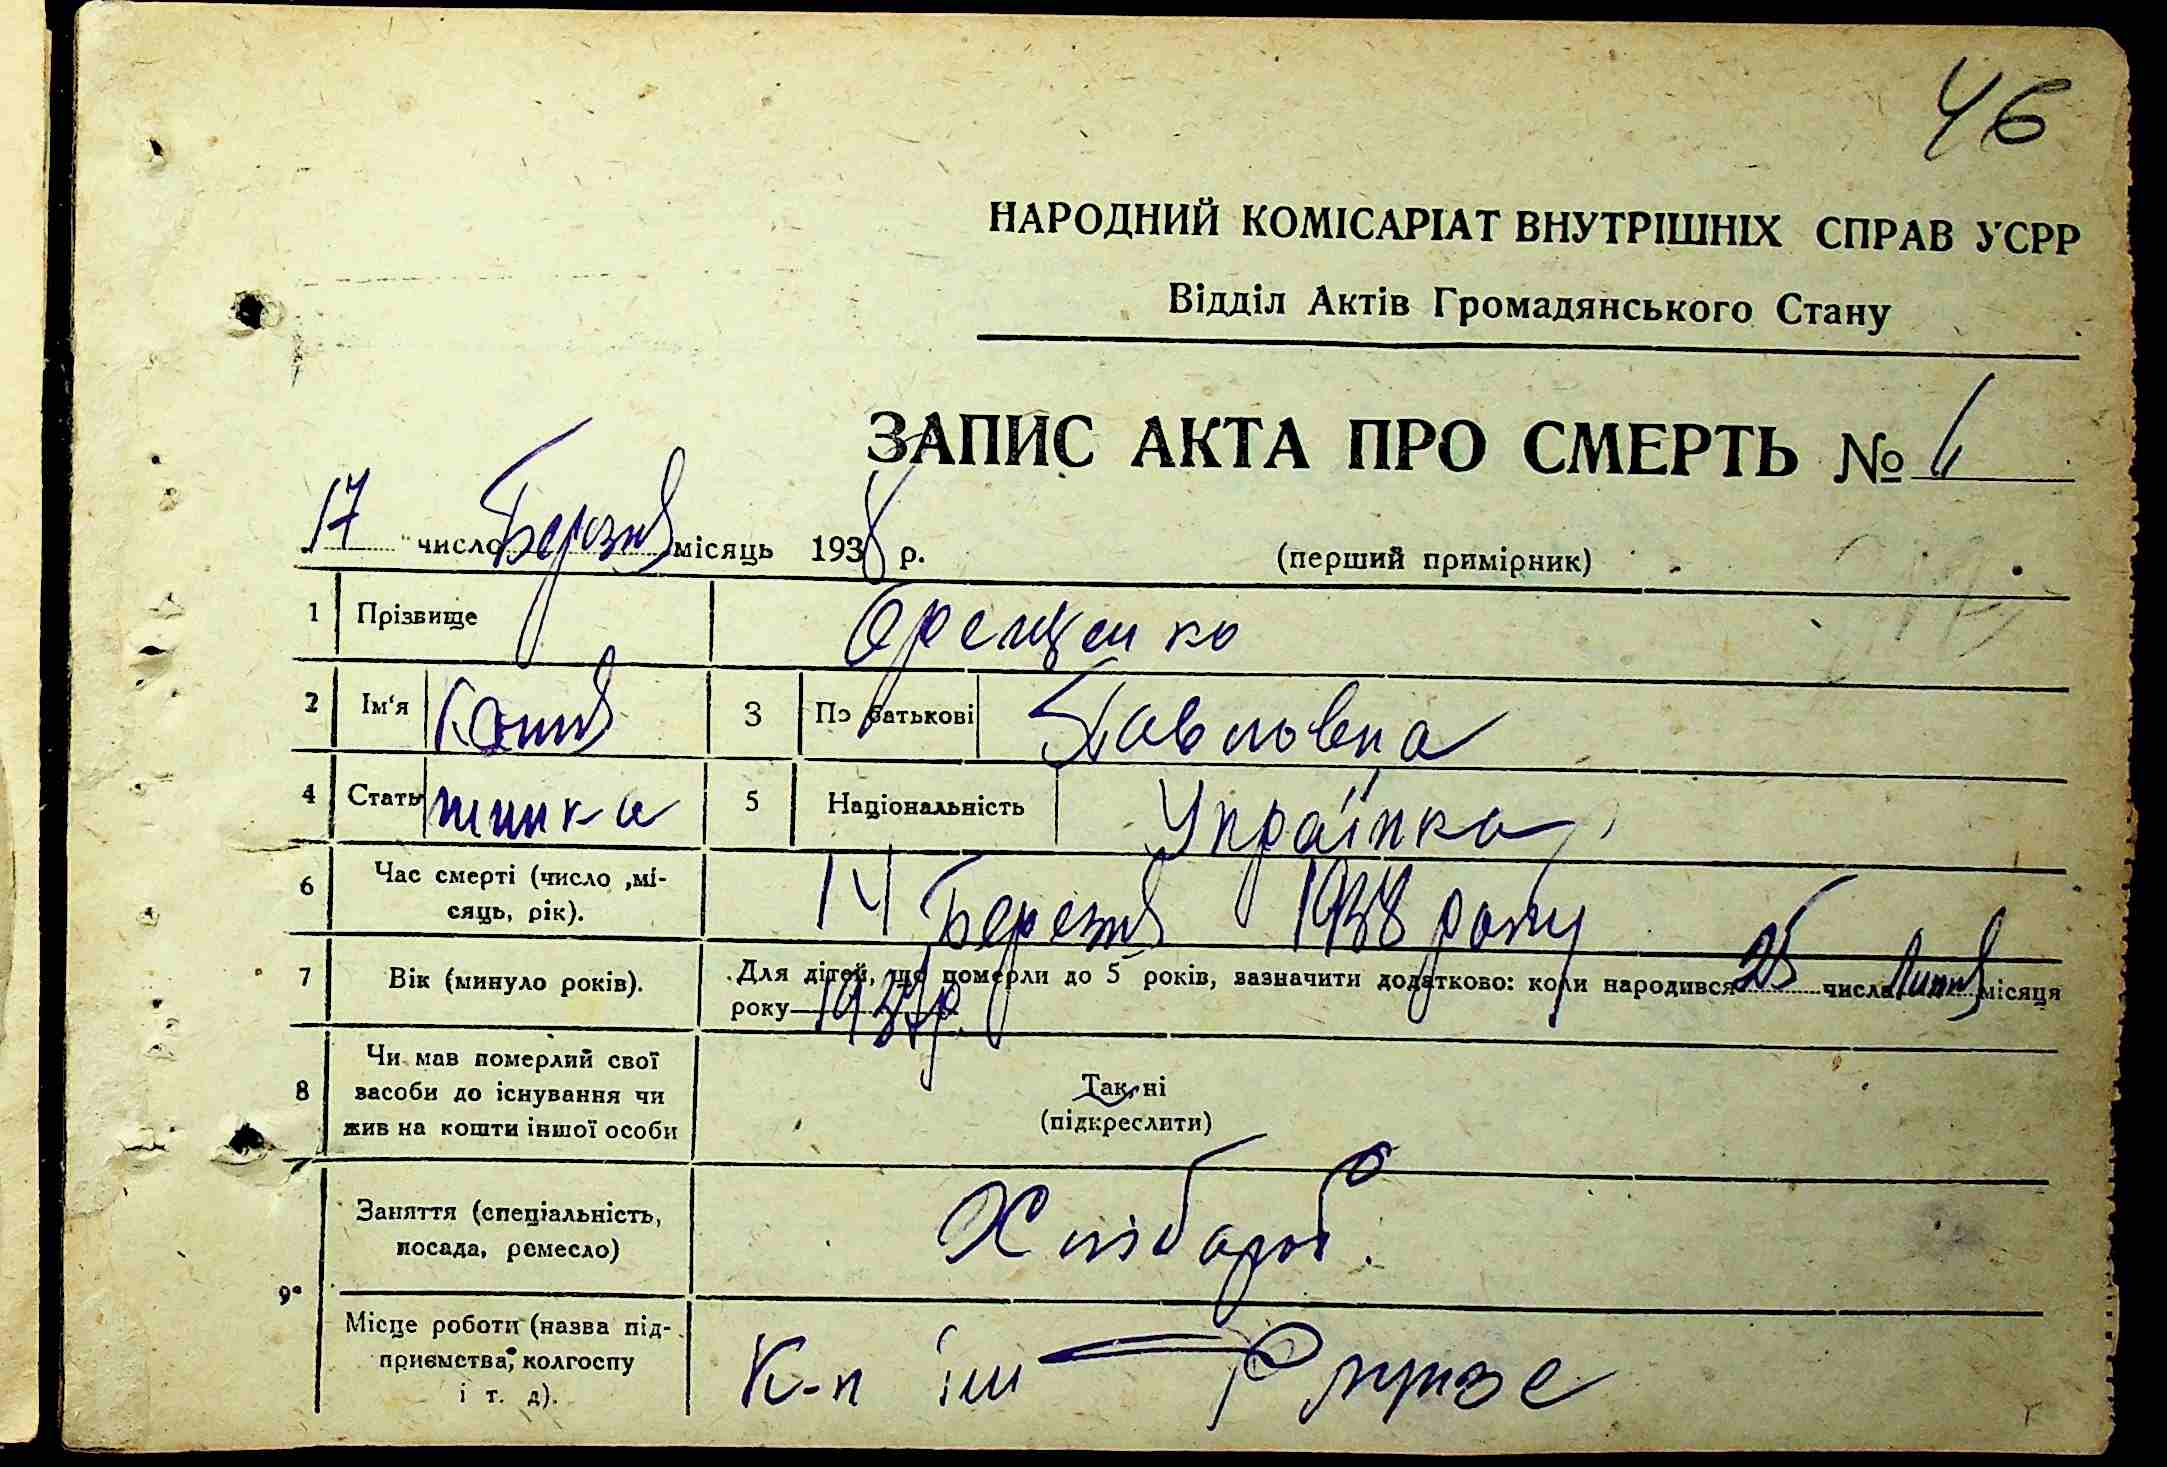 46
НАРОДНИЙ КОМІСАРІАТ ВНУТРІШНІХ СПРАВ УСРР
Відділ Актів Громадянського Стану
ЗАПИС АКТА ПРО СМЕРТЬ №
17 число Березня місяць 1938 р.
(перший примірник)
1 Прізвище
2 Ім'я 3 По батькові Павловна
4 Стать жінка 5 Національність Українка
6 Час смерті (число ,мі-
сяць, рік). 14 Березня 1938 року
7 Вік (минуло років). Для дітей, що померли до 5 років, зазначити додатково: коли народився 25 числа Липня місяця
року
8 Чи мав померлий свої
засоби до існування чи
жив на кошти іншої особи
Так, ні
(підкреслити)
9
Заняття (спеціальність,
посада, ремесло) Хлібороб
Місце роботи (назва під-
приємства, колгоспу
і т. д). К-п ім